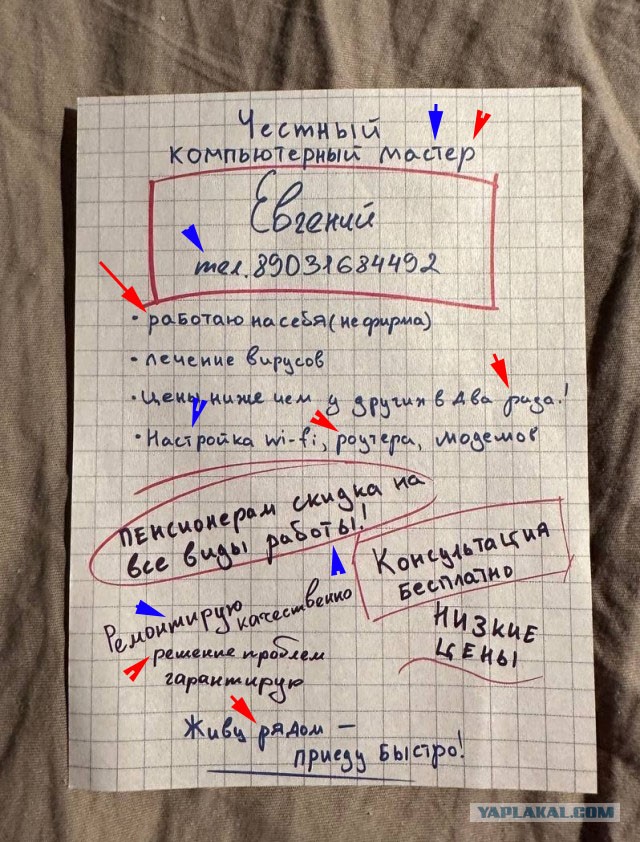 Честный
компьютерный мастер
Евгений
тел. 89031684492
• работаю на себя (не фирма)
• лечение вирусов
• Цены ниже чем у других в два раза!
• Настройка wi-fi, роутера, модемов
ПЕНСИОНЕРАМ СКИДКА НА
ВСЕ ВИДЫ РАБОТЫ!
КОНСУЛЬТАЦИЯ
БЕСПЛАТНО
НИЗКИЕ
ЦЕНЫ
Ремонтирую качественно
решение проблем
гарантирую
Живу рядом –
приеду быстро!
YAPLAKAL.COM